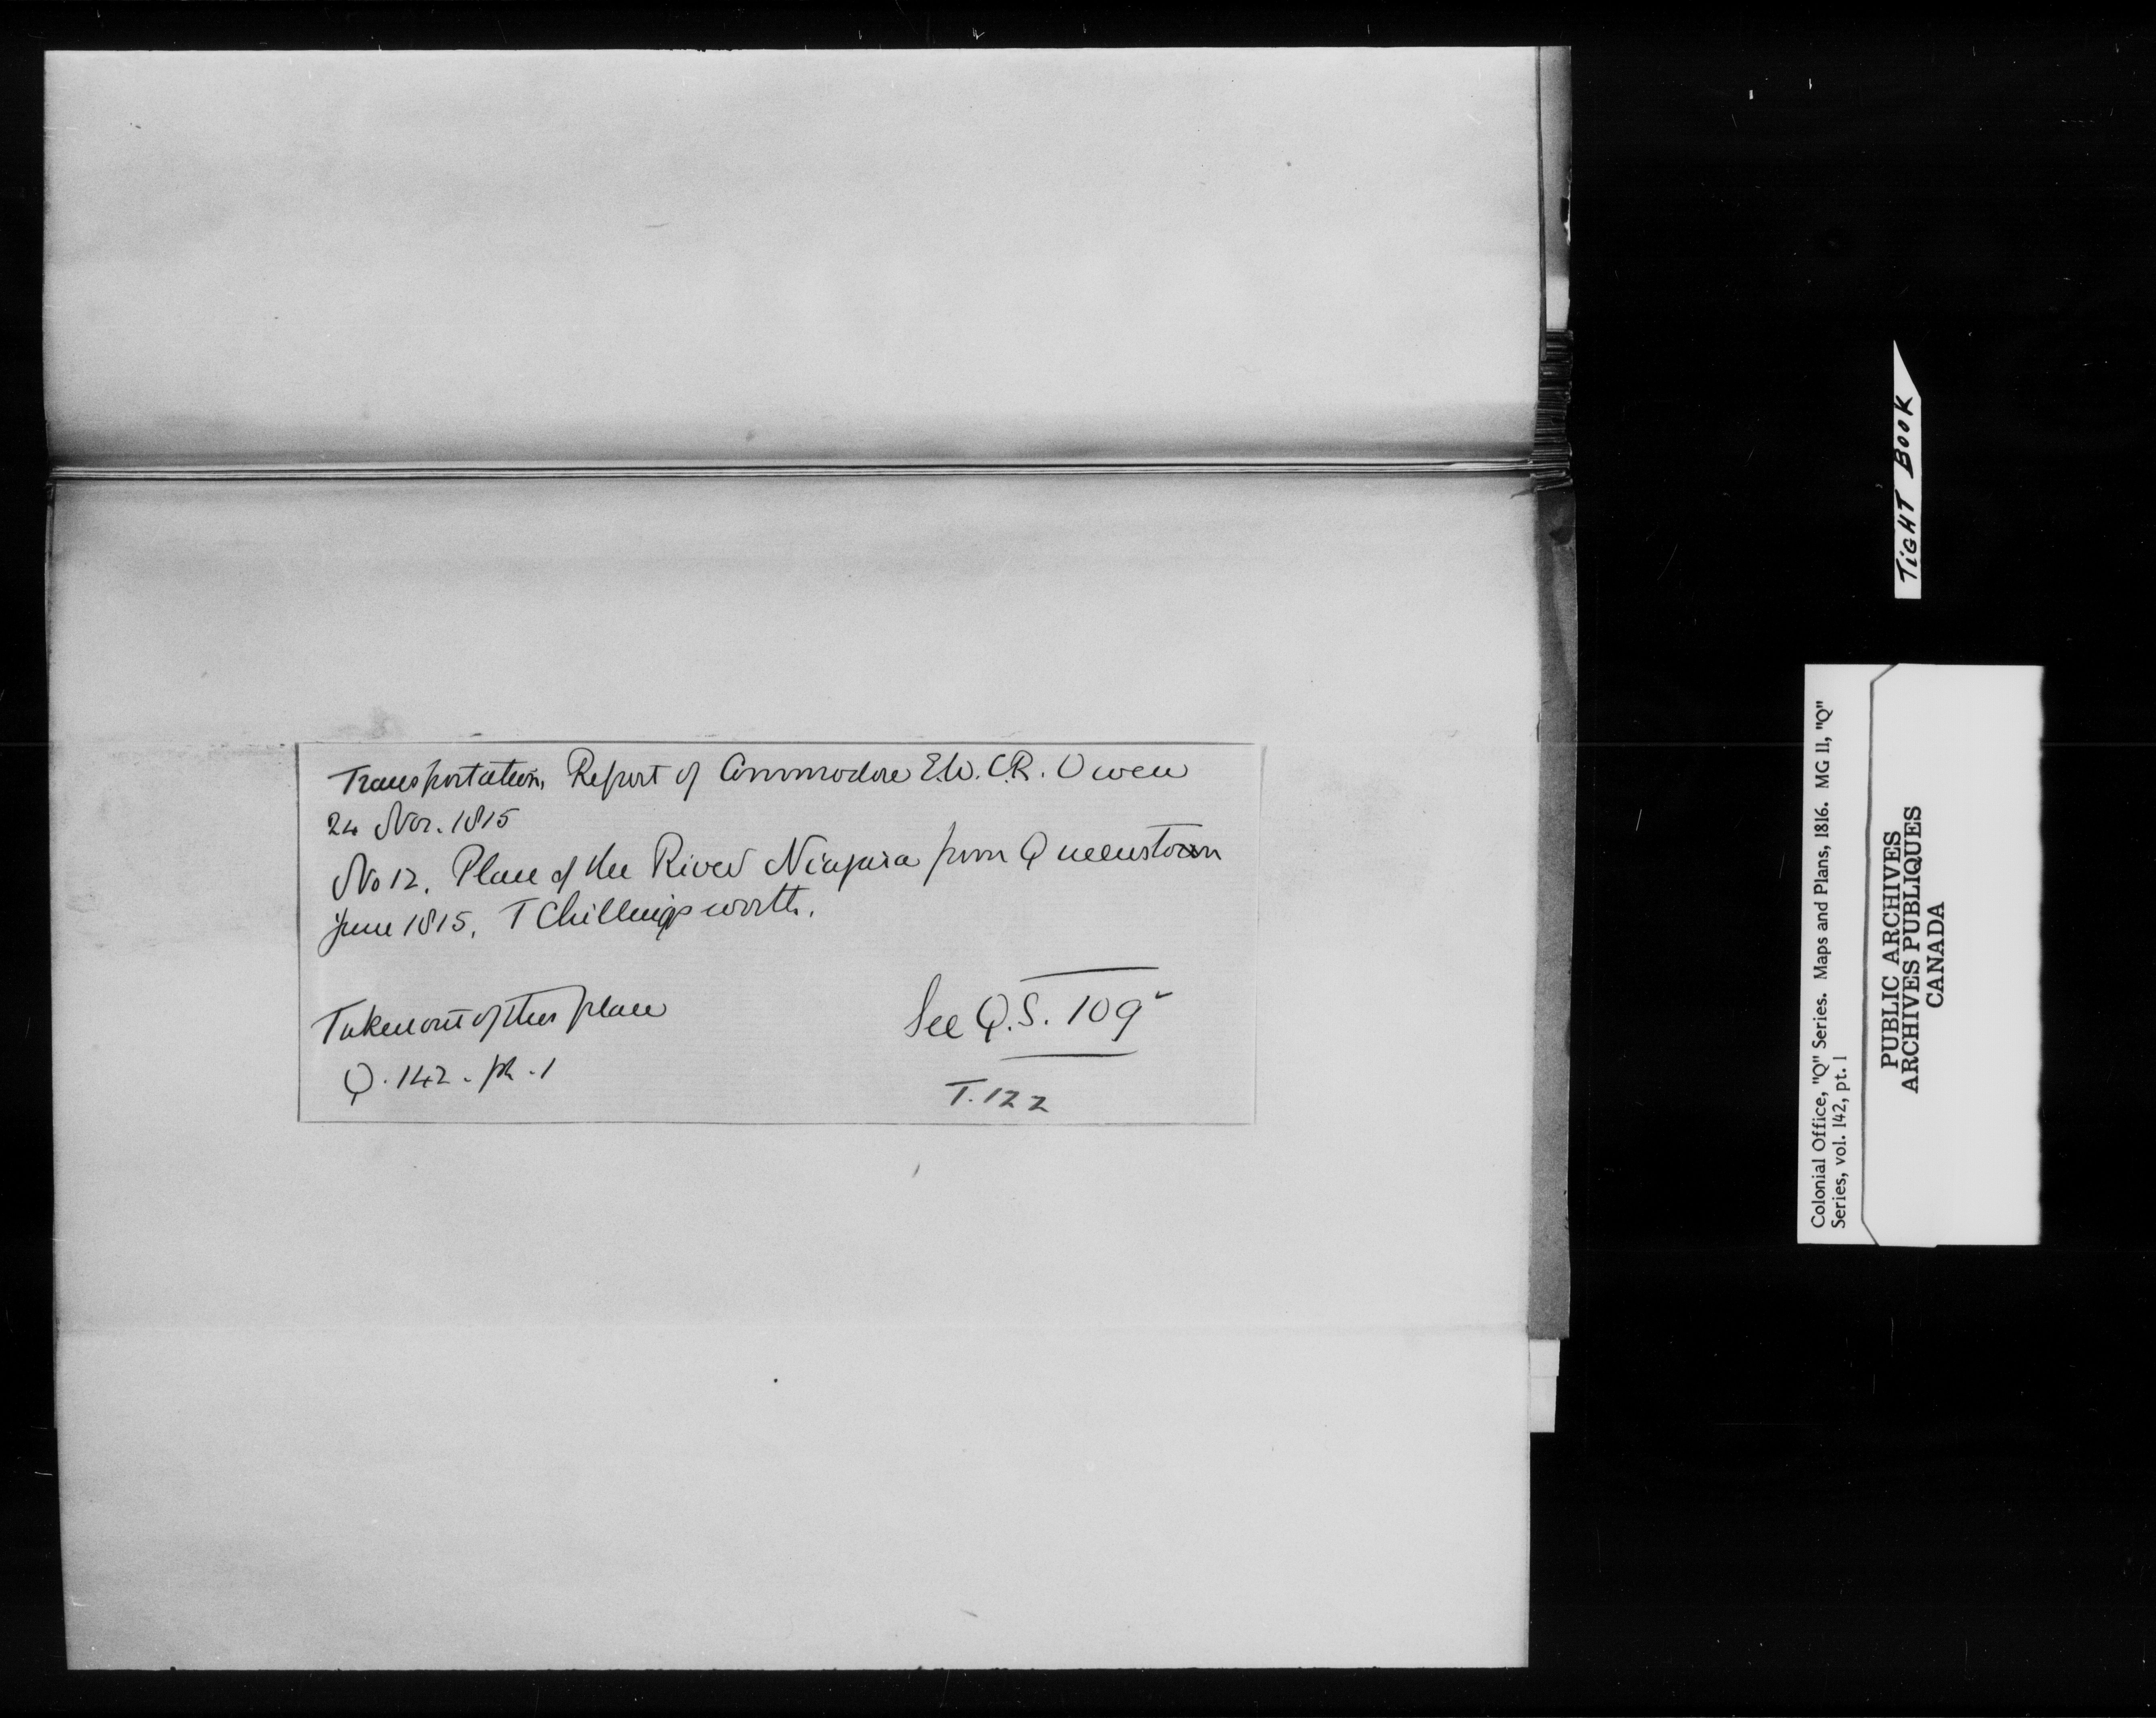 Transportation, Report of Commodore E.W.C.R. Owen
24 Nov. 1815
No 12. Plan of the River Niagara from Queenstown
June 1815. T Chillingsworth.
Taken out of this place
Q. 142. pt. 1
See Q.S. 109
T. 122
TiGHT BOOK
Colonial Office, "Q" Series. Maps and Plans, 1816. MG 11, "Q"
Series, vol. 142, pt. 1
PUBLIC ARCHIVES
ARCHIVES PUBLIQUES
CANADA